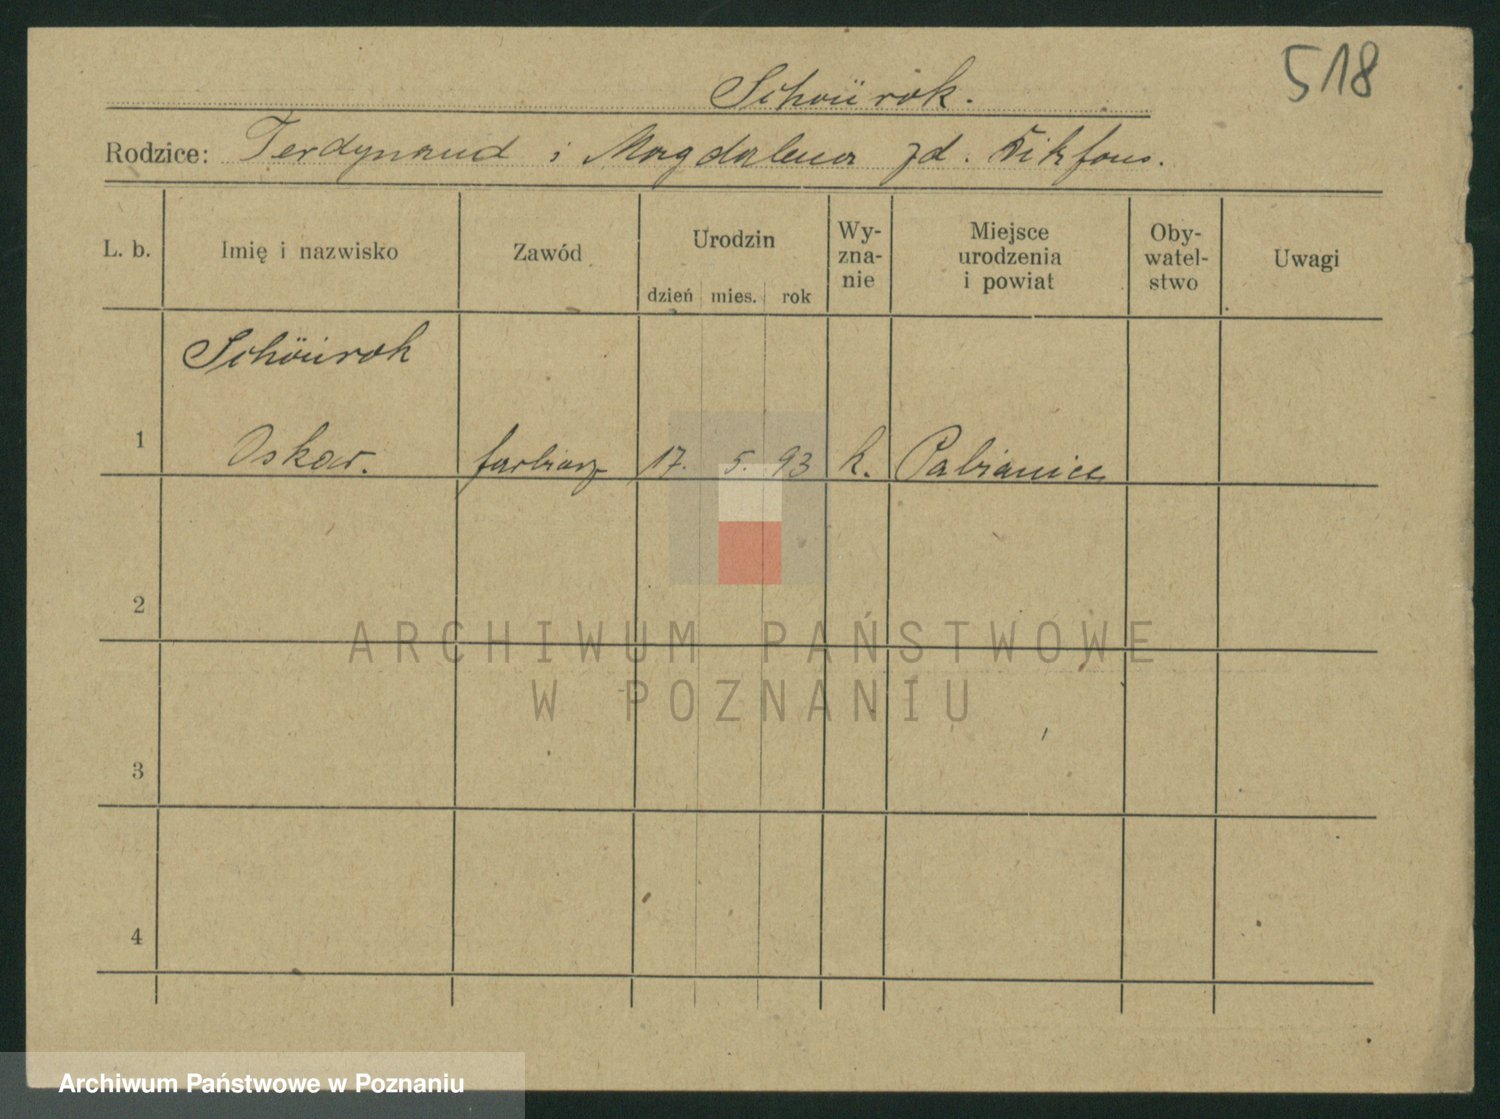 518
Schöürok.
Rodzice: Ferdynand i Magdalena zd.
L. b. Imię i nazwisko Zawód Urodzin dzień mies. rok Wy-zna-nie Miejsce urodzenia i powiat Oby-watel-stwo Uwagi
Schöürok
1 Oskar. farbiarz 17. 5. 93 k. Pabianice
2
3
4
ARCHIWUM PAŃSTWOWE
W POZNANIU
Archiwum Państwowe w Poznaniu